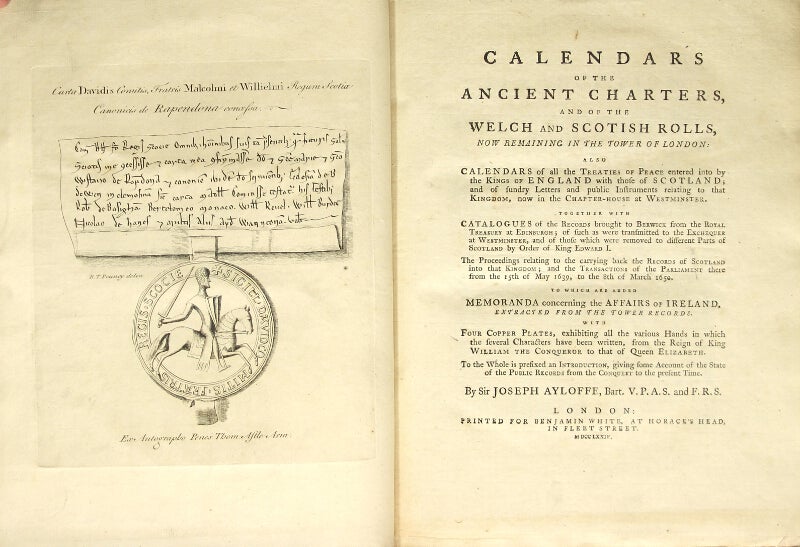 Carta Davidis Comitis, Fratris Malcolmi et Willielmi Regum Scotiæ
Canonicis de Rapendona concessa.
B. T. Pouncy delin.
REGIS SCOCIE
SIGILL DAVID CO
MITIS FRATRIS
Ex Autographo Penes Thom Astle Arm.
CALENDARS
OF THE
ANCIENT CHARTERS,
AND OF THE
WELCH AND SCOTISH ROLLS,
NOW REMAINING IN THE TOWER OF LONDON:
ALSO
CALENDARS of all the TREATIES OF PEACE entered into by
the KINGS OF ENGLAND with those of SCOTLAND;
and of sundry Letters and public Instruments relating to that
KINGDOM, now in the CHAPTER-HOUSE at WESTMINSTER.
TOGETHER WITH
CATALOGUES of the RECORDS brought to BERWICK from the ROYAL
TREASURY at EDINBURGH; of such as were transmitted to the EXCHEQUER
at WESTMINSTER, and of those which were removed to different Parts of
SCOTLAND by Order of King EDWARD I.
The Proceedings relating to the carrying back the RECORDS of SCOTLAND
into that KINGDOM; and the TRANSACTIONS of the PARLIAMENT there
from the 15th of May 1639, to the 8th of March 1650.
TO WHICH ARE ADDED
MEMORANDA concerning the AFFAIRS OF IRELAND,
EXTRACTED FROM THE TOWER RECORDS.
WITH
FOUR COPPER PLATES, exhibiting all the various Hands in which
the ſeveral Characters have been written, from the Reign of King
WILLIAM THE CONQUEROR to that of Queen ELIZABETH.
To the Whole is prefixed an INTRODUCTION, giving ſome Account of the State
of the PUBLIC RECORDS from the CONQUEST to the preſent Time.
By Sir JOSEPH AYLOFFE, Bart. V. P. A. S. and F. R. S.
LONDON:
PRINTED FOR BENJAMIN WHITE, AT HORACE'S HEAD,
IN FLEET STREET.
MDCCLXXIV.